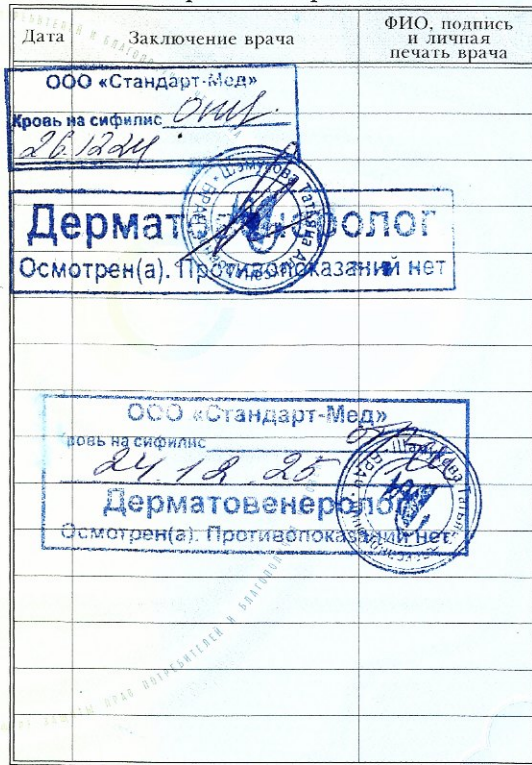 Дата
Заключение врача
ФИО, подпись
и личная
печать врача
ООО «Стандарт-Мед»
Кровь на сифилис отр.
26.12.24
Дерматовенеролог
Осмотрен(а). Противопоказаний нет
ООО «Стандарт-Мед»
ровь на сифилис
24.12.25
Дерматовенеролог
Осмотрен(а). Противопоказаний нет
ПРАВ ПОТРЕБИТЕЛЕЙ И БЛАГОПОЛ